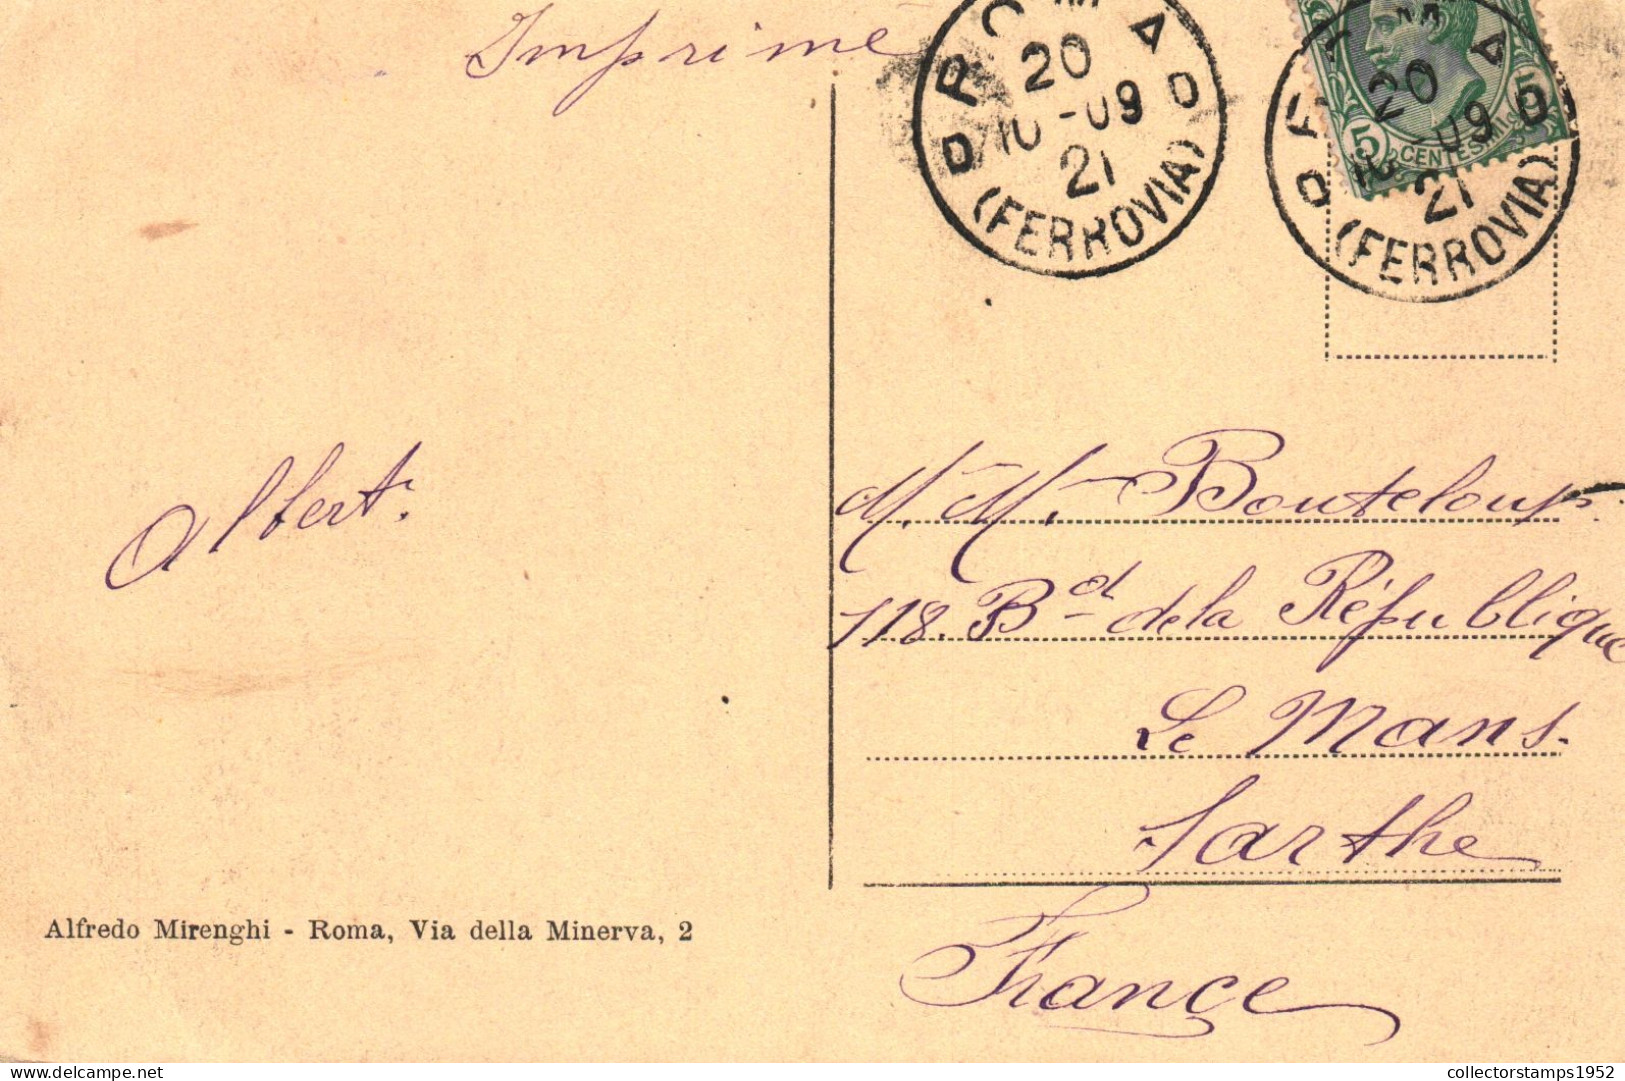 Imprimé
ROMA
20
10-09
21
(FERROVIA)
ROMA
20
10-09
21
(FERROVIA)
5 5
CENTESIMI
Albert.
M. M. Bouteloup.
118. Bd de la République
Le Mans.
Sarthe
France
Alfredo Mirenghi - Roma, Via della Minerva, 2
delcampe.net
collectorstamps1952